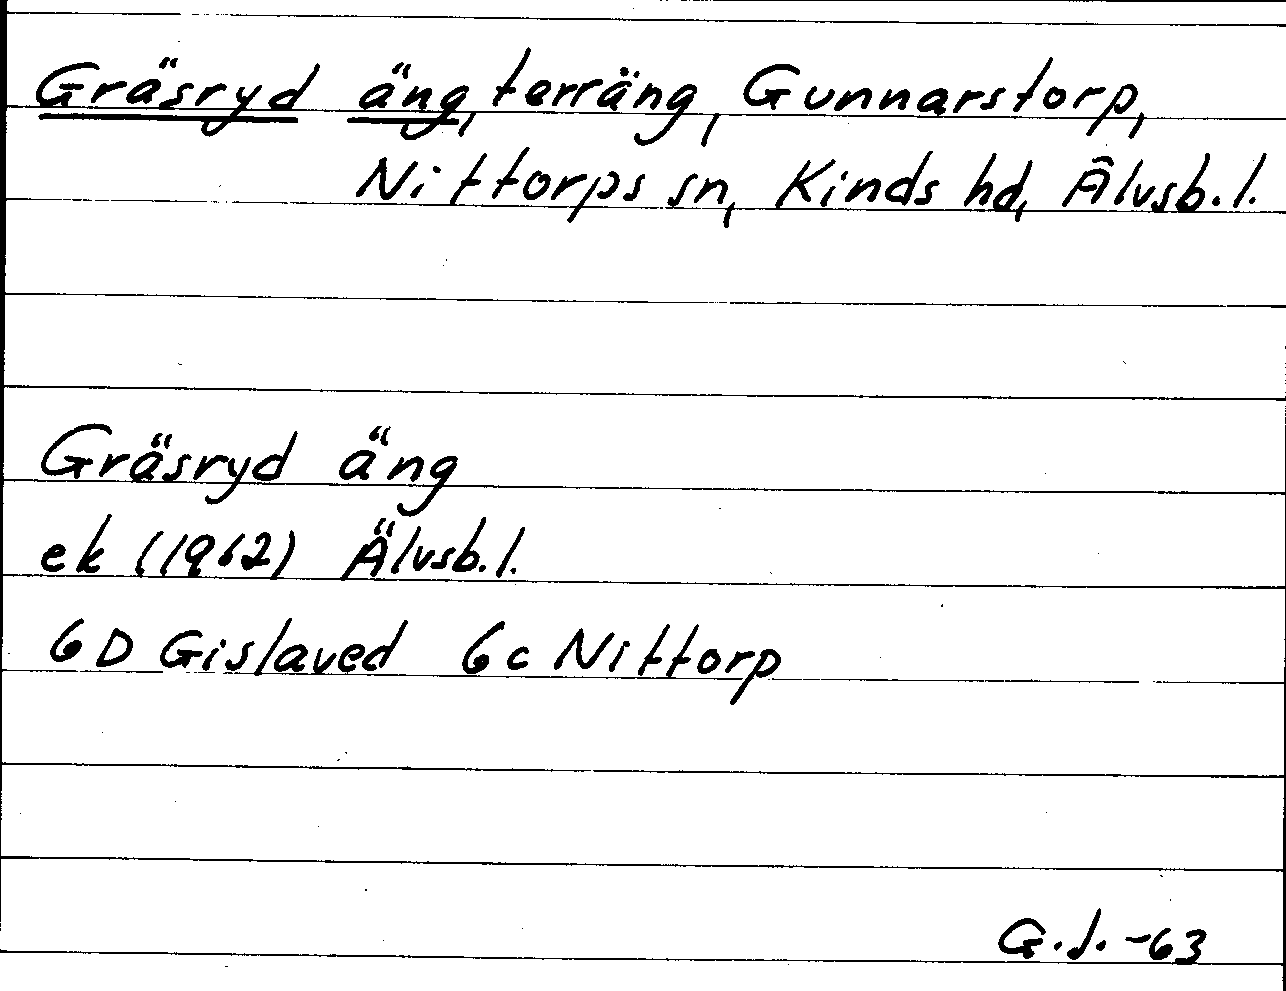 Gräsryd äng, terräng, Gunnarstorp,
Nittorps sn, Kinds hd, Älvsb. l.
Gräsryd äng
ek (1962) Älvsb. l.
6D Gislaved 6c Nittorp
G.J. -63